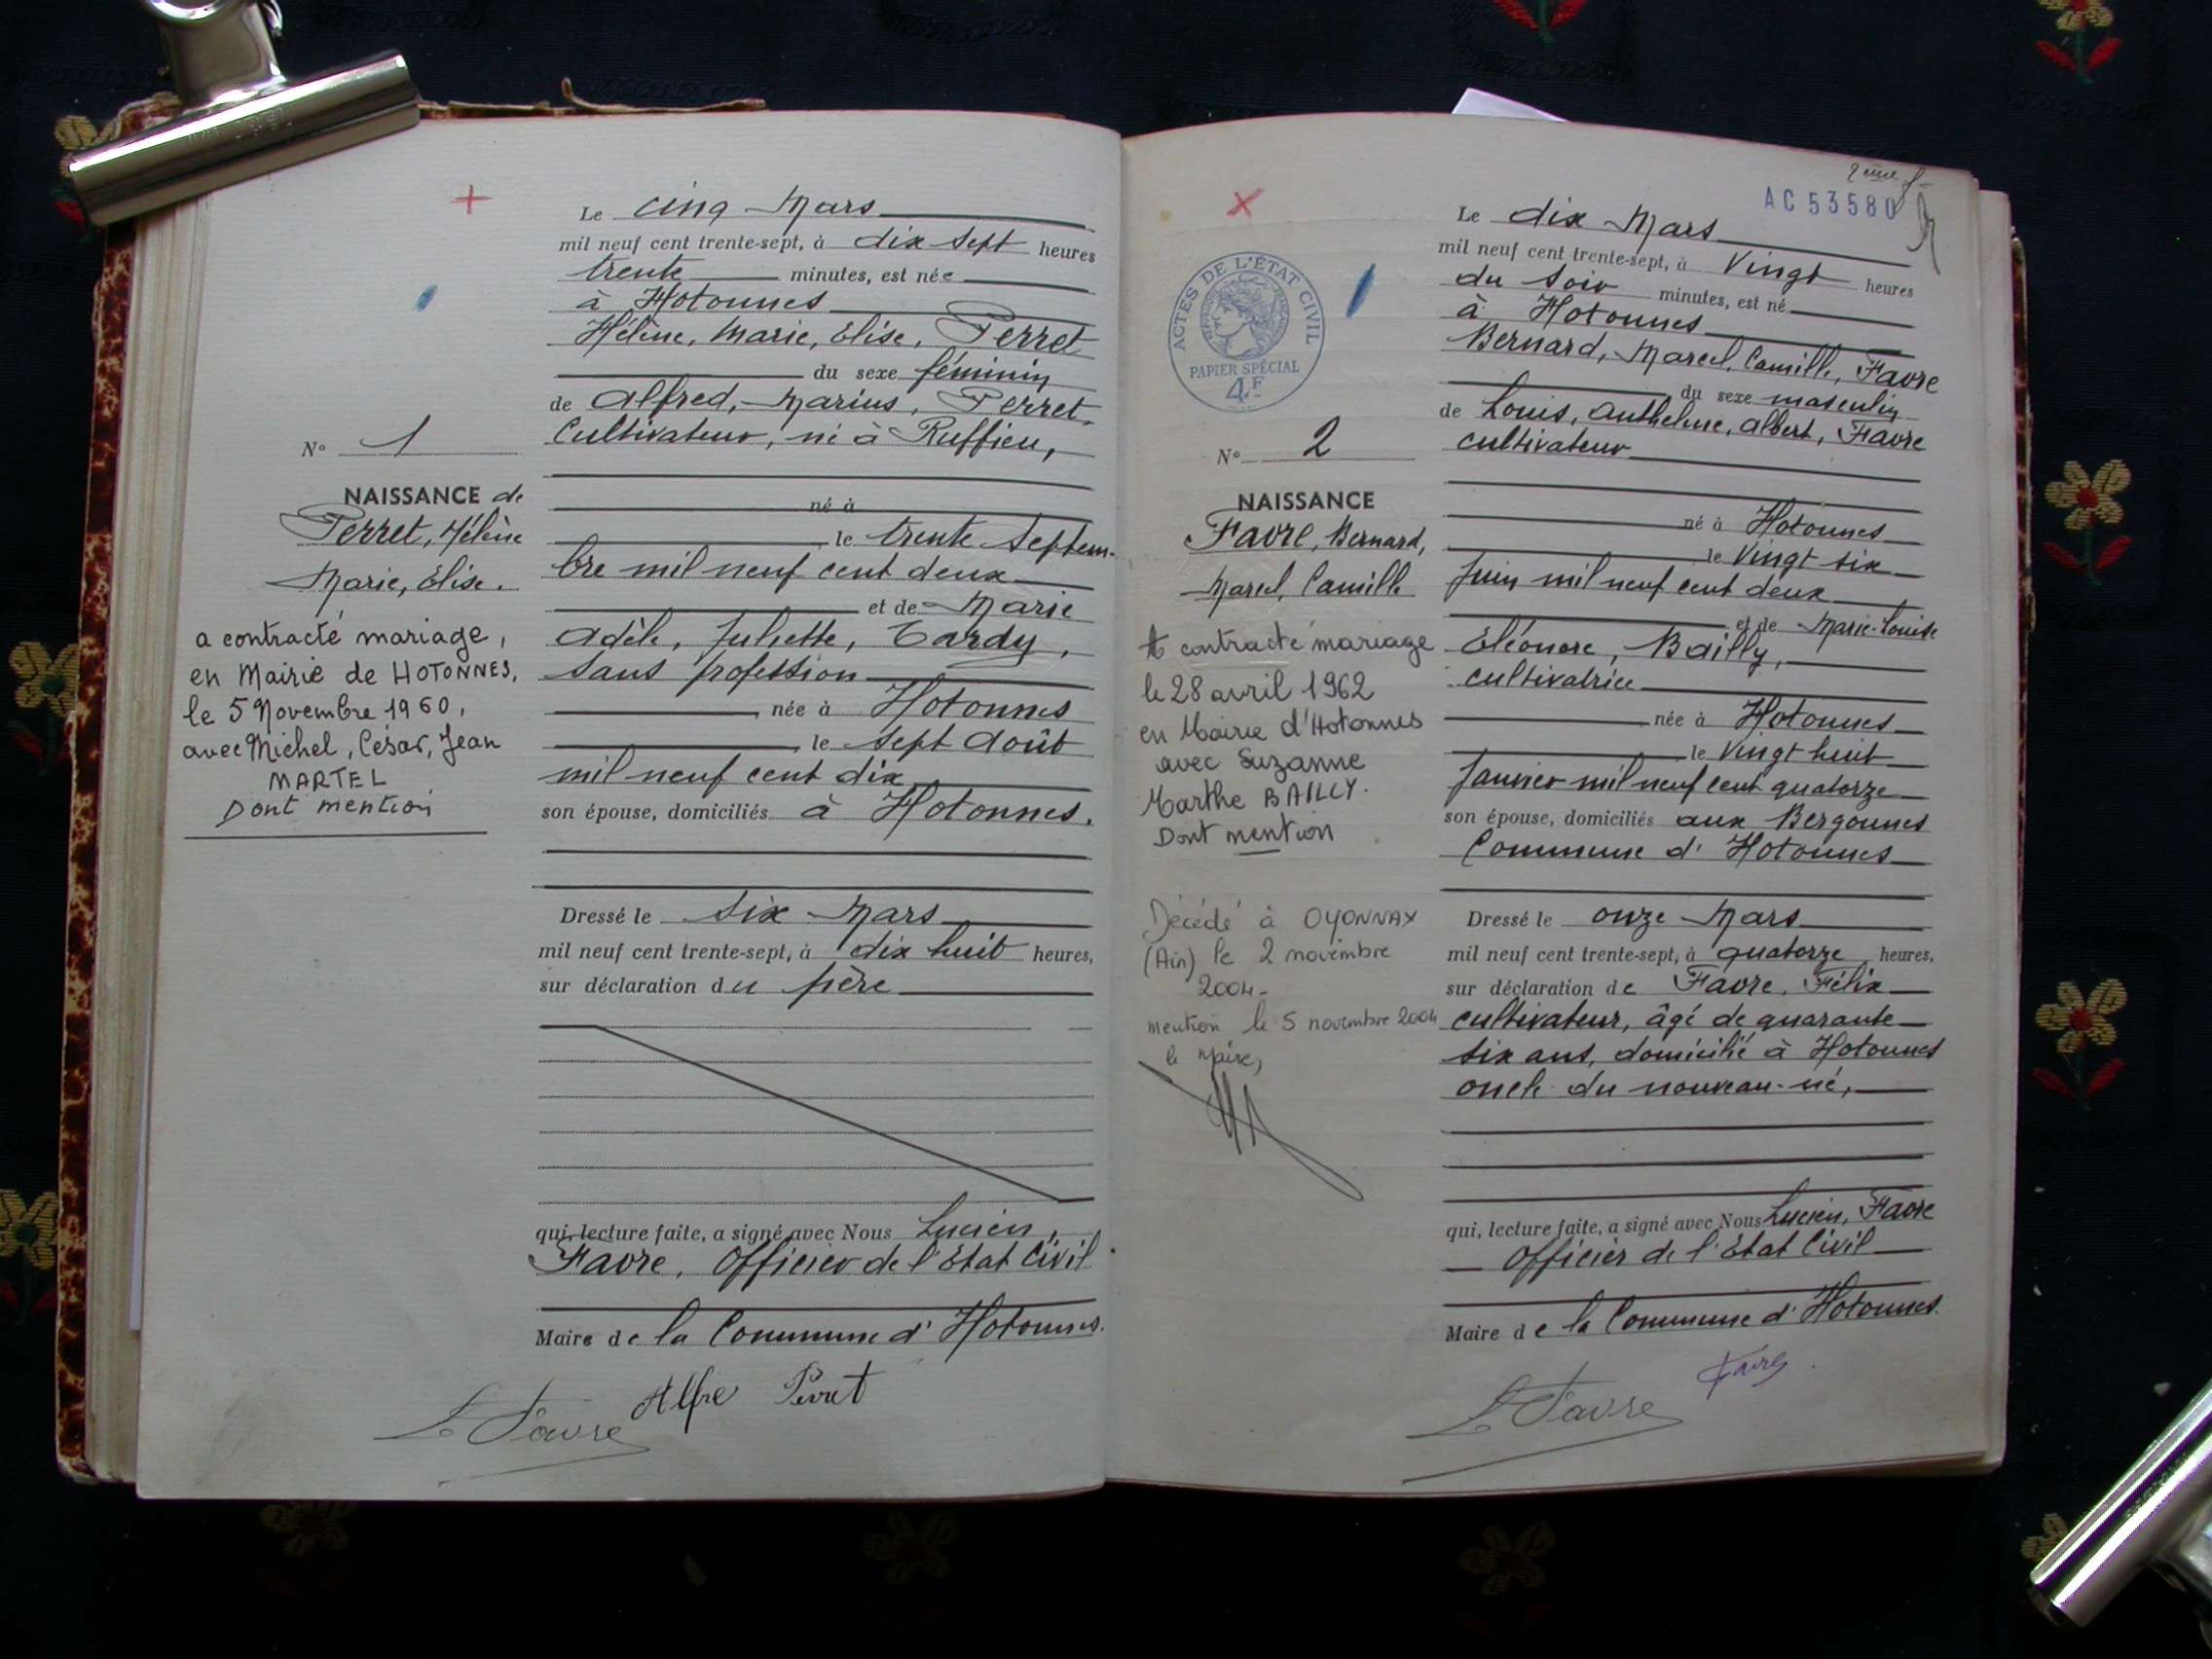 Le cinq Mars
mil neuf cent trente-sept, à dix sept heures
trente minutes, est née
à Hotonnes
Hélène, Marie, Elise, Perret
du sexe féminin
de Alfred, Marius, Perret,
Cultivateur, né à Ruffieu,
né à
le trente Septem-
bre mil neuf cent deux
et de Marie
Adèle, Juliette, Tardy,
sans profession
née à Hotonnes
le sept Août
mil neuf cent dix
son épouse, domiciliés à Hotonnes.
Dressé le six Mars
mil neuf cent trente-sept, à dix huit heures,
sur déclaration du père
qui, lecture faite, a signé avec Nous Lucien,
Favre, Officier de l'Etat Civil
Maire de la Commune d'Hotonnes.
Alfre Perret
L Favre
N° 1
NAISSANCE de
Perret, Hélène
Marie, Elise.
a contracté mariage,
en Mairie de HOTONNES,
le 5 Novembre 1960,
avec Michel, César, Jean
MARTEL
Dont mention
2eme f
AC 53580
Le dix Mars
mil neuf cent trente-sept, à Vingt heures
du soir minutes, est né
à Hotonnes
Bernard, Marcel, Camille, Favre
du sexe masculin
de Louis, Anthelme, Albert, Favre
cultivateur
né à Hotonnes
le Vingt six
Juin mil neuf cent deux
et de Marie-Louise
Eléonore, Bailly,
cultivatrice
née à Hotonnes
le Vingt huit
Janvier mil neuf cent quatorze
son épouse, domiciliés aux Bergonnes
Commune d'Hotonnes
Dressé le onze Mars
mil neuf cent trente-sept, à quatorze heures,
sur déclaration de Favre, Félix
cultivateur, âgé de quarante
six ans, domicilié à Hotonnes
oncle du nouveau-né,
qui, lecture faite, a signé avec Nous Lucien, Favre
Officier de l'Etat Civil
Maire de la Commune d'Hotonnes.
Favre
L Favre
ACTES DE L'ÉTAT CIVIL
PAPIER SPÉCIAL
4F
N° 2
NAISSANCE
Favre, Bernard,
Marcel, Camille
A contracté mariage
le 28 avril 1962
en Mairie d'Hotonnes
avec Suzanne
Marthe BAILLY.
Dont mention
Décédé à OYONNAX
(Ain) le 2 novembre
2004-
mention le 5 novembre 2004
le Maire,